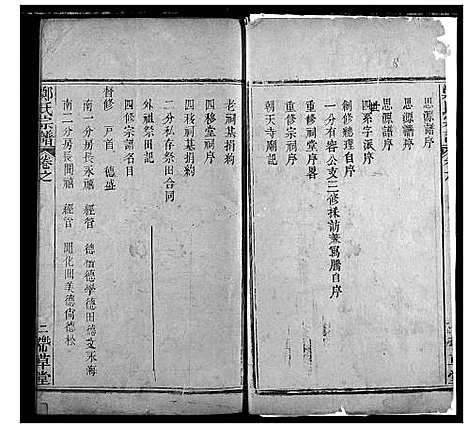 思源譜序
思源譜序
四系字派序
創修總理自序
一分有容公支二修採訪兼寫騰自序
重修祠堂序畧
重修宗祠序
朝天寺廟記
老祠基捐約
四移堂祠序
四移祠基捐約
二分私存祭田合同
外祖祭田記
四修宗譜名目
督修 戸首 德盛
南一分房長永禧 經管 德懷德學德田德文永海
南二分房長開禧 經管 開化開美德尚德松
鄭氏宗譜 卷之 二 瑞草堂